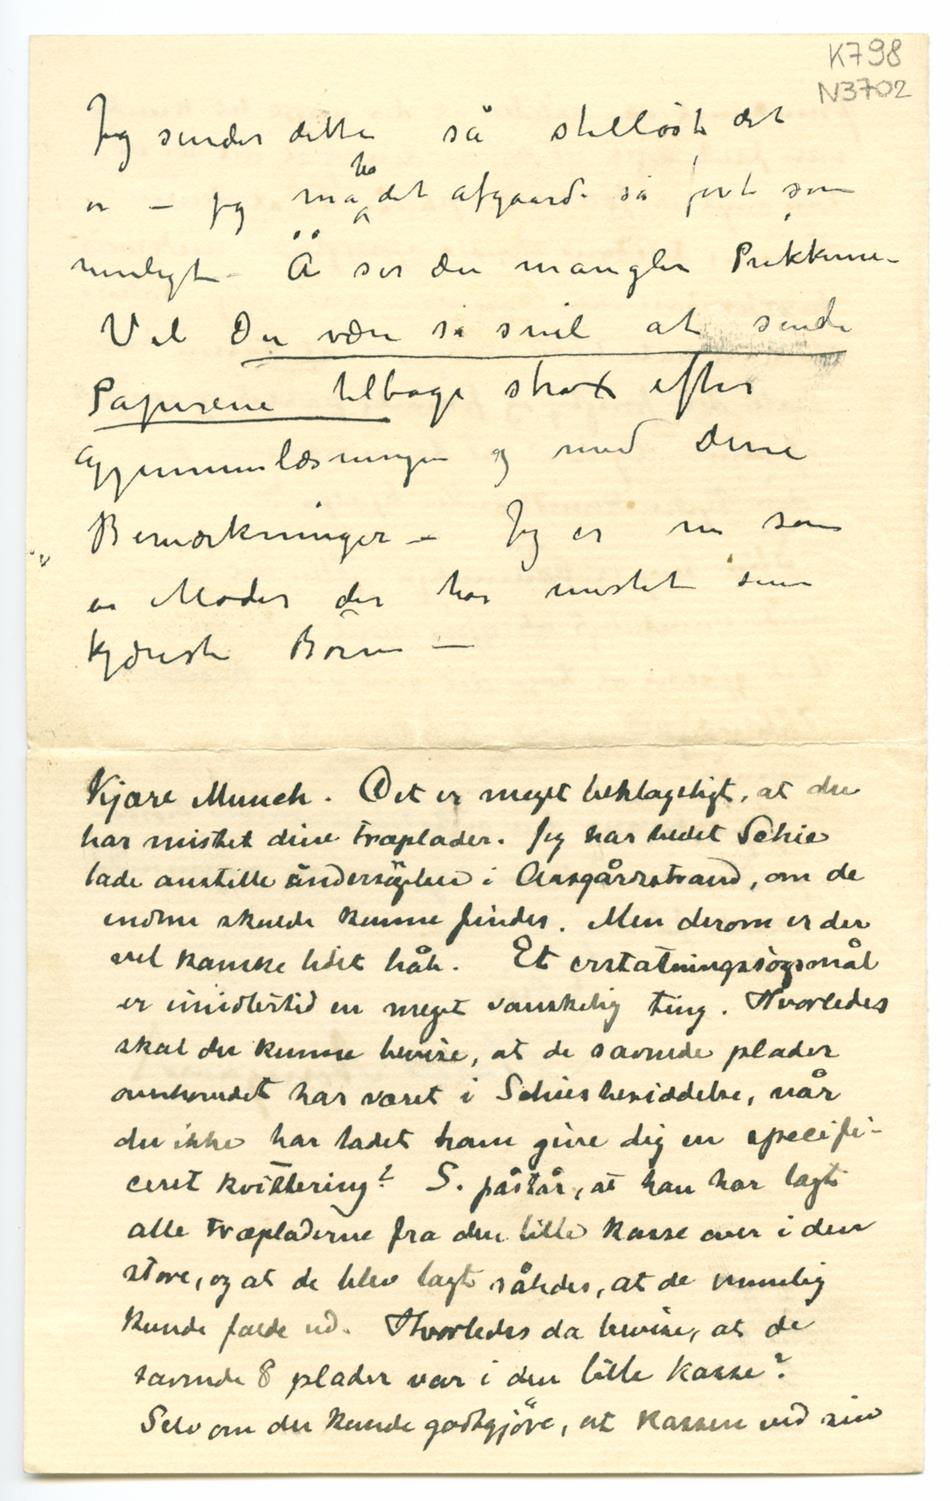 K798
N3702
Jeg sender dette så stilløst det
er – jeg må ha det afgaarde så fort som
muligt – Ä ser du mangler Prikkerne –
Vil Du være så snil at sende
Papirene tilbage strax efter
Gjennemlæsningen og med dine
Bemærkninger – Jeg er nu som
en Moder der har mistet sine
kjæreste Börn –
Kjære Munch. Det er meget beklageligt, at du
har mistet dine træplader. Jeg har bedet Schie
lade anstille undersögelser i Aasgårdstrand, om de
endnu skulde kunne findes. Men derom er der
vel kanske lidet håb. Et erstatningssögsmål
er imidlertid en meget vanskelig ting. Hvorledes
skal du kunne bevise, at de savnede plader
overhovedet har været i Schies besiddelse, når
du ikke har ladet ham give dig en specifi-
ceret kvittering? S. påstår, at han har lagt
alle træpladerne fra den lille kasse over i den
store, og at de blev lagt således, at de umulig
kunde falde ud. Hvorledes da bevise, at de
savnede 8 plader var i den lille kasse?
Selv om du kunde godtgjöre, at kassen ved sin